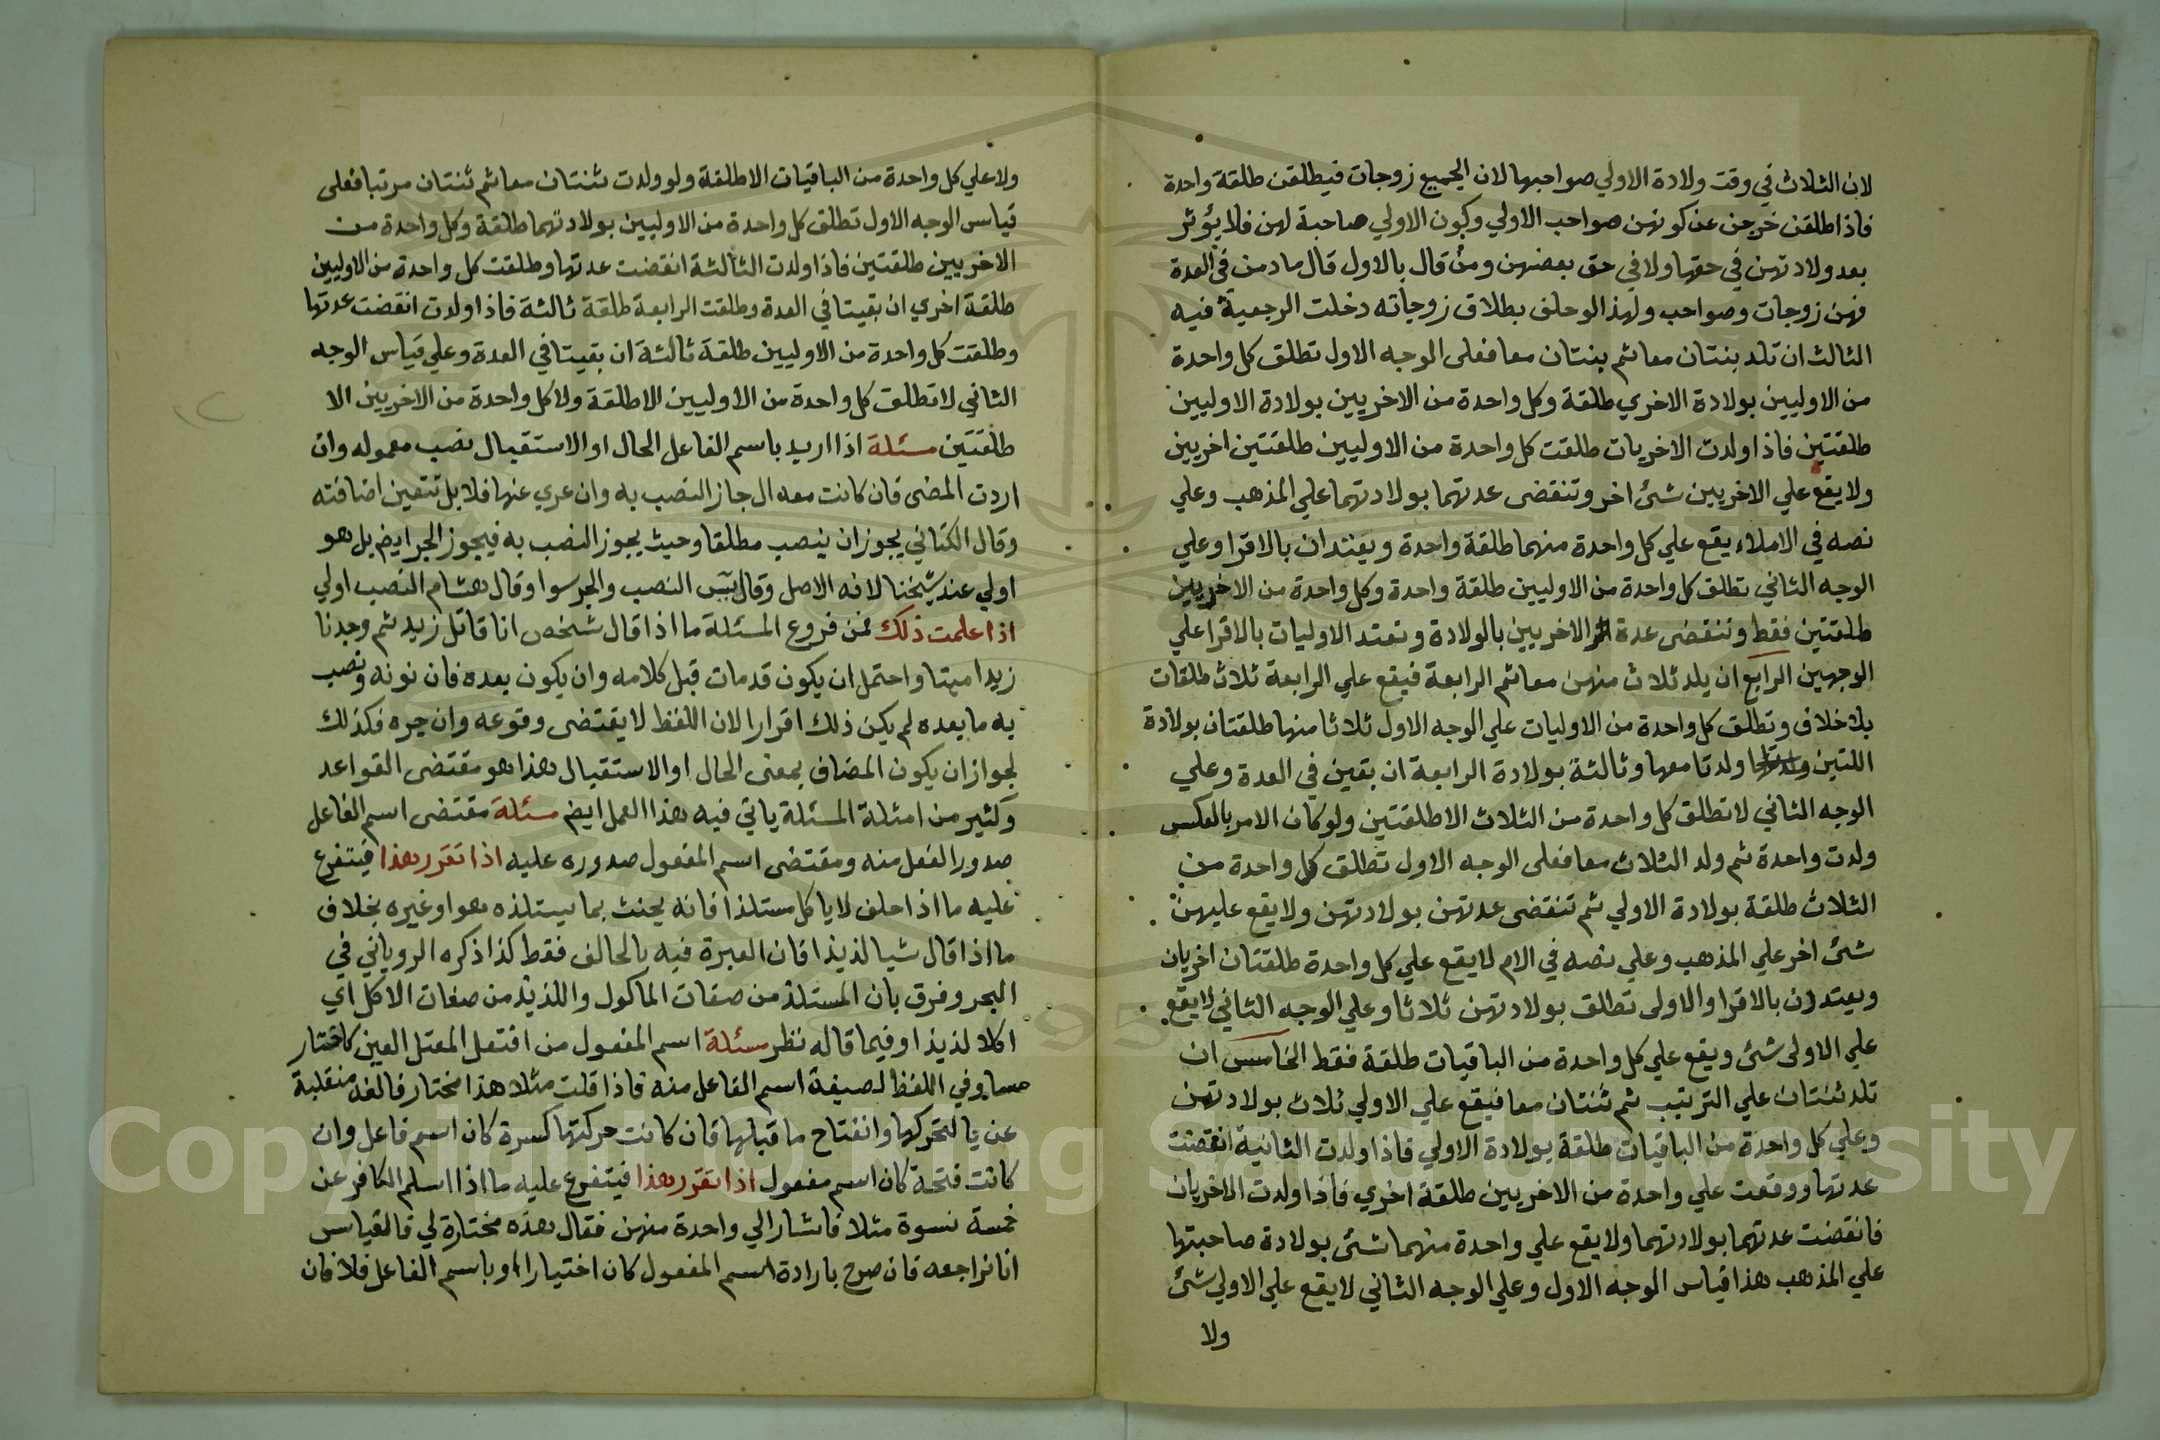 لان الثلاث في وقت ولادة الاولي صواحبها لان الجميع زوجات فيطلقن طلقة واحدة
فاذا طلقن خرجن عن كونهن صواحب الاولي وكون الاولي صاحبة لهن فلا يؤثر
بعد ولادتهن في حقها ولا في حق بعضهن ومن قال بالاول قال ما دمن في العدة
فهن زوجات وصواحب ولهذا لو حلف بطلاق زوجاته دخلت الرجعية فيه
الثالث ان تلد بنتان معا ثم بنتان معا فعلى الوجه الاول تطلق كل واحدة
من الاوليين بولادة الاخري طلقة وكل واحدة من الاخريين بولادة الاوليين
طلقتين فاذا ولدت الاخريات طلقت كل واحدة من الاوليين طلقتين اخريين
ولا يقع علي الاخريين شئ اخر وتنقضى عدتهما بولادتهما علي المذهب وعلي
نصه في الاملاء يقع علي كل واحدة منهما طلقة واحدة ويعتدان بالاقرا وعلي
الوجه الثاني تطلق كل واحدة من الاوليين طلقة واحدة وكل واحدة من الاخريين
طلقتين فقط وتنقضى عدة الاخريين بالولادة وتعتد الاوليات بالاقرا علي
الوجهين الرابع ان يلد ثلاث منهن معا ثم الرابعة فيقع علي الرابعة ثلاث طلقات
بلا خلاف وتطلق كل واحدة من الاوليات علي الوجه الاول ثلاثا منها طلقتان بولادة
اللتين ولدتا معها وثالثة بولادة الرابعة ان بقين في العدة وعلي
الوجه الثاني لا تطلق كل واحدة من الثلاث الا طلقتين ولو كان الامر بالعكس
ولدت واحدة ثم ولد الثلاث معا فعلى الوجه الاول تطلق كل واحدة من
الثلاث طلقة بولادة الاولي ثم تنقضى عدتهن بولادتهن ولا يقع عليهن
شئ اخر علي المذهب وعلي نصه في الام لا يقع علي كل واحدة طلقتان اخريان
ويعتدن بالاقرا والاولى تطلق بولادتهن ثلاثا وعلي الوجه الثاني لا يقع
علي الاولى شئ ويقع علي كل واحدة من الباقيات طلقة فقط الخامس ان
تلد ثنتان علي الترتيب ثم ثنتان معا فيقع علي الاولي ثلاث بولادتهن
وعلي كل واحدة من الباقيات طلقة بولادة الاولي فاذا ولدت الثانية انقضت
عدتها ووقعت علي واحدة من الاخريين طلقة اخري فاذا ولدت الاخريان
فانقضت عدتهما بولادتهما ولا يقع علي واحدة منهما شئ بولادة صاحبتها
علي المذهب هذا قياس الوجه الاول وعلي الوجه الثاني لا يقع علي الاولي شئ
ولا
ولا علي كل واحدة من الباقيات الا طلقة ولو ولدت ثنتان معا ثم ثنتان مرتبا فعلى
قياس الوجه الاول تطلق كل واحدة من الاوليين بولادتهما طلقة وكل واحدة من
الاخريين طلقتين فاذا ولدت الثالثة انقضت عدتها وطلقت كل واحدة من الاوليين
طلقة اخري ان بقيتا في العدة وطلقت الرابعة طلقة ثالثة فاذا ولدت انقضت عدتها
وطلقت كل واحدة من الاوليين طلقة ثالثة ان بقيتا في العدة وعلي قياس الوجه
الثاني لا تطلق كل واحدة من الاوليين الا طلقة ولا كل واحدة من الاخريين الا
طلقتين مسئلة اذا اريد باسم الفاعل الحال او الاستقبال نصب معموله وان
اردت المضى فان كانت معه ال جاز النصب به وان عري عنها فلا بل تتعين اضافته
وقال الكسائي يجوز ان ينصب مطلقا وحيث يجوز النصب به فيجوز الجر ايضم بل هو
اولي عند شيخنا لانه الاصل وقال س النصب والجر سوا وقال هشام النصب اولي
اذا علمت ذلك فمن فروع المسئلة ما اذا قال شخص انا قاتل زيد ثم وجدنا
زيدا ميتا واحتمل ان يكون قد مات قبل كلامه وان يكون بعده فان نونه ونصب
به ما بعده لم يكن ذلك اقرارا لان اللفظ لا يقتضى وقوعه وان جره فكذلك
لجواز ان يكون المضاف بمعنى الحال او الاستقبال هذا هو مقتضى القواعد
وكثير من امثلة المسئلة ياتي فيه هذا العمل ايضم مسئلة مقتضى اسم الفاعل
صدور الفعل منه ومقتضى اسم المفعول صدوره عليه اذا تقرر هذا فيتفرع
عليه ما اذا حلف لا ياكل مستلذا فانه يحنث بما يستلذه هو او غيره بخلاف
ما اذا قال شيا لذيذا فان العبرة فيه بالحالف فقط كذا ذكره الروياني في
البحر وفرق بان المستلذ من صفات الماكول واللذيذ من صفات الاكل اي
اكلا لذيذا وفيما قاله نظر مسئلة اسم المفعول من افتعل المعتل العين كاختار
مساو في اللفظ لصيغة اسم الفاعل منه فاذا قلت مثلا هذا مختار فالفه منقلبة
عن يا لتحركها وانفتاح ما قبلها فان كانت حركتها كسرة كان اسم فاعل وان
كانت فتحة كان اسم مفعول اذا تقرر هذا فيتفرع عليه ما اذا اسلم الكافر عن
خمسة نسوة مثلا فاشار الي واحدة منهن فقال هذه مختارة لي فالقياس
انا نراجعه فان صرح بارادة اسم المفعول كان اختيارا او باسم الفاعل فلا فان
Copyright © King Saud University